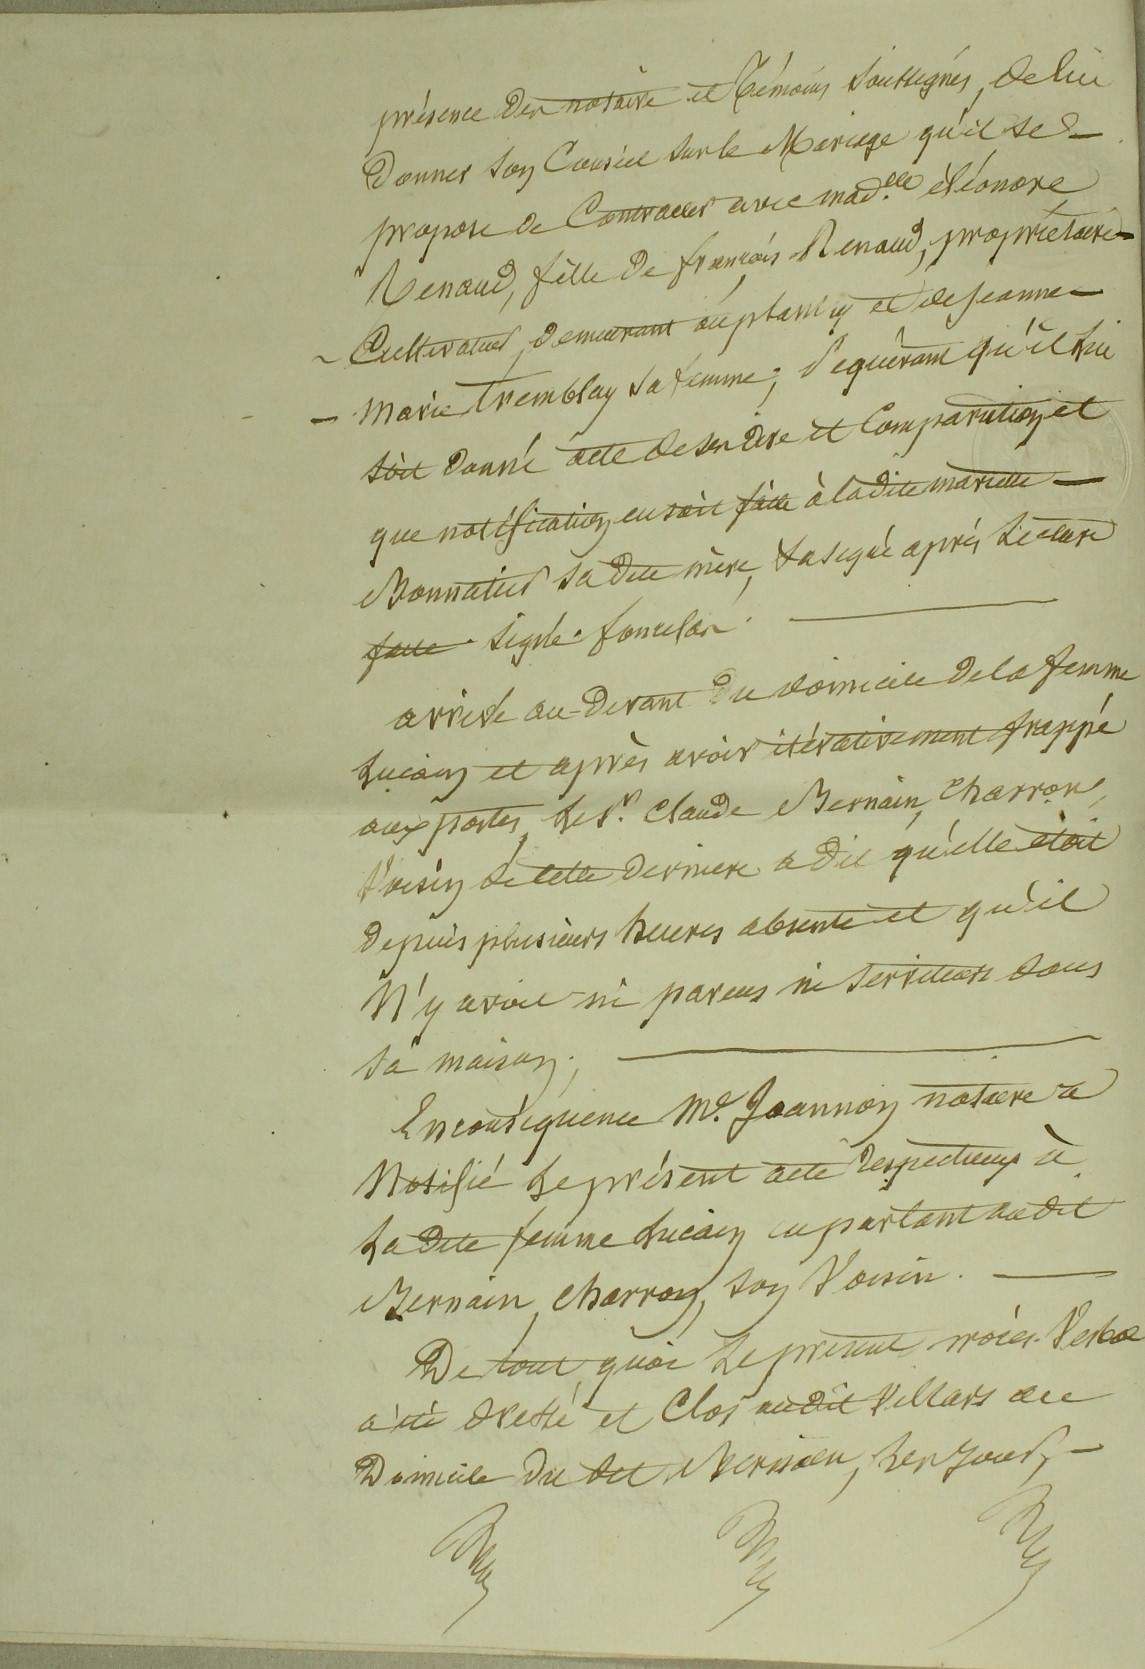 présence des notaire et témoins soussignés, de lui
donner son Conseil sur le Mariage qu'il se
propose de Contracter avec mad.elle éléonore
Renaud, fille de françois Renaud, propriétaire
Cultivateur, demeurant au et de jeanne
marie Tremblay sa femme; requérant qu'il lui
soit donné acte de son dire et Comparution et
que notification en soit faite à la dite mariette
Monnatier sa dite mère, & a signé après lecture
faite. signé.
arrivé au-devant du domicile de la femme
Luçon et après avoir itérativement frappé
aux portes, le S.r Claude Bernain, charron,
Voisin de cette dernière a dit qu'elle étoit
depuis plusieurs heures absente et qu'il
N'y avoit ni parens ni serviteurs dans
sa maison;
En conséquence M.e Joannon notaire a
Notifié le présent acte respectueux à
la dite femme Luçon en parlant au dit
Bernain, charron, son Voisin.
De tout quoi le présent procès Verbal
a été dressé et Clos audit Villars au
Domicile du dit Bernain, les jour,